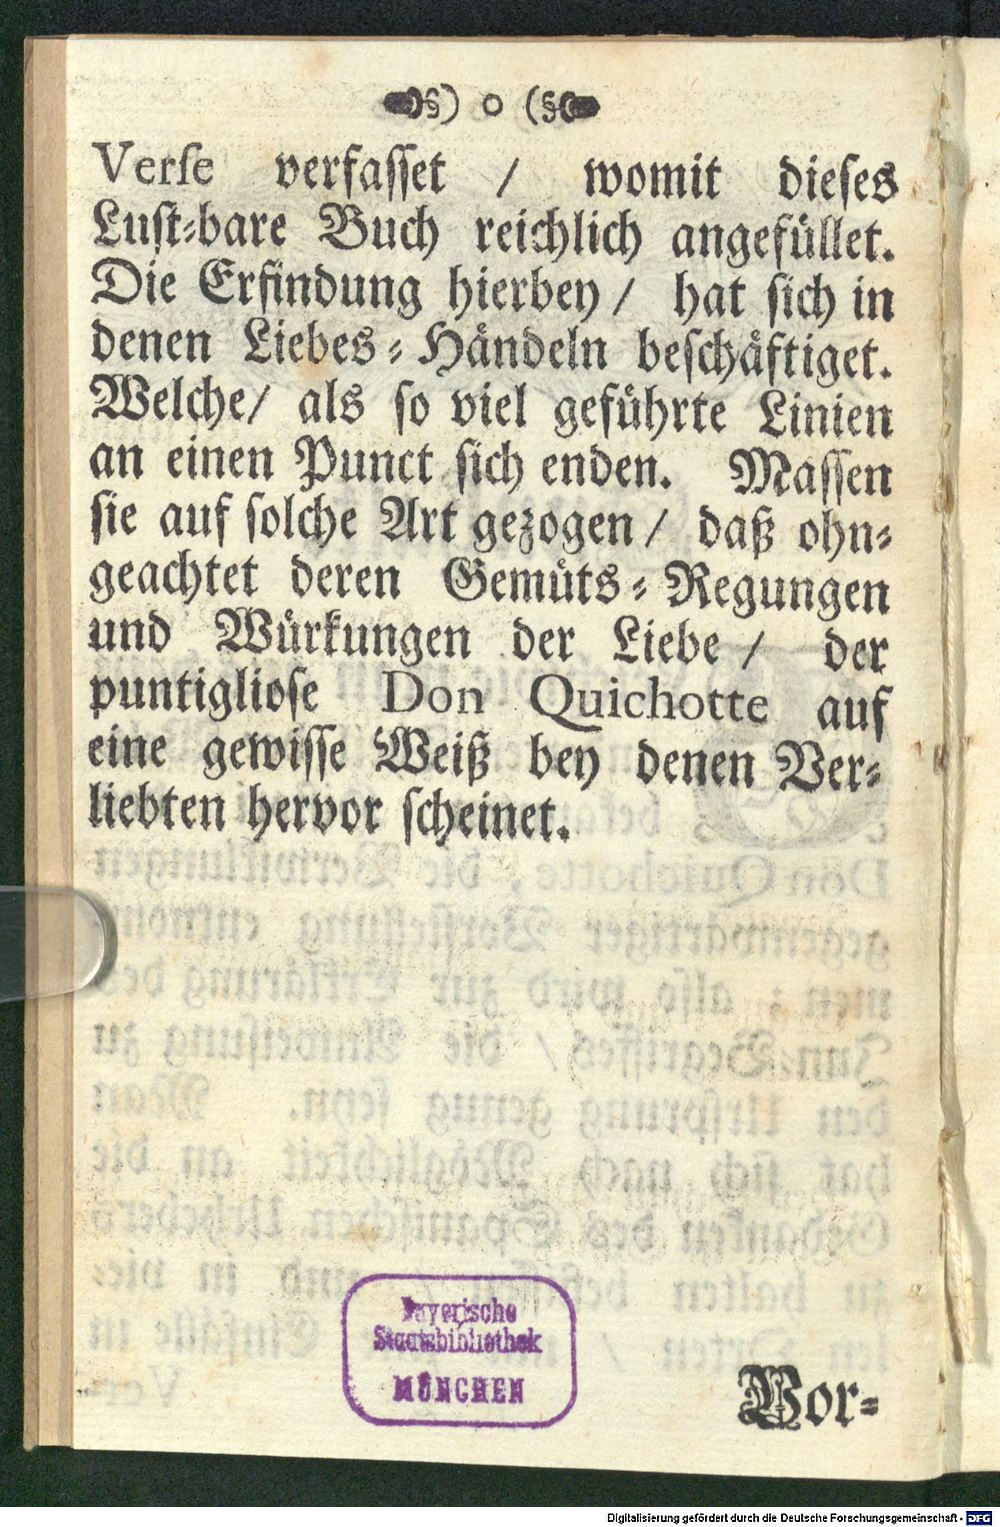 §) o (§
Verſe verfaſſet / womit dieſes
Luſt-bare Buch reichlich angefüllet.
Die Erfindung hierbey / hat ſich in
denen Liebes-Händeln beſchäftiget.
Welche/ als ſo viel geführte Linien
an einen Punct ſich enden. Maſſen
ſie auf ſolche Art gezogen / daß ohn-
geachtet deren Gemüts-Regungen
und Würkungen der Liebe / der
puntiglioſe Don Quichotte auf
eine gewiſſe Weiß bey denen Ver-
liebten hervor ſcheinet.
Bayerische
Staatsbibliothek
MÜNCHEN
Vor-
Digitalisierung gefördert durch die Deutsche Forschungsgemeinschaft - DFG